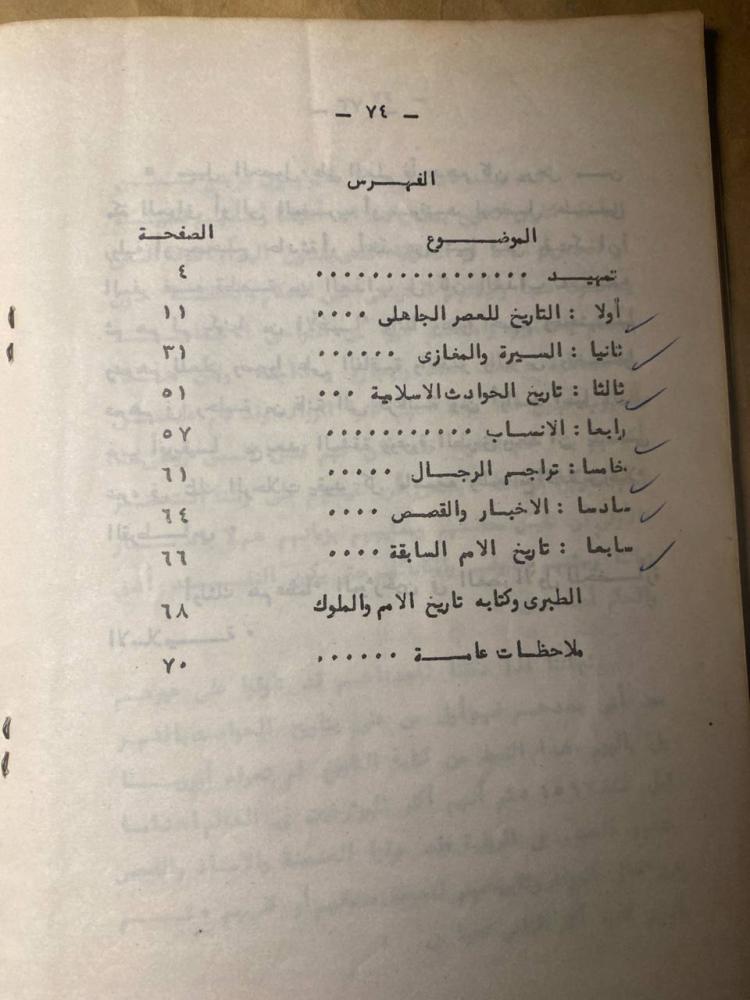 — ٧٤ —
الفهرس
الموضوع الصفحة
تمهيد ................ ٤
أولا : التاريخ للعصر الجاهلى .... ١١
ثانيا : السيرة والمغازى ...... ٣١
ثالثا : تاريخ الحوادث الاسلامية ... ٥١
رابعا : الانساب ........... ٥٧
خامسا : تراجم الرجال ..... ٦١
سادسا : الاخبار والقصص .... ٦٤
سابعا : تاريخ الامم السابقة .... ٦٦
الطبرى وكتابه تاريخ الامم والملوك ٦٨
ملاحظات عامة ...... ٧٠